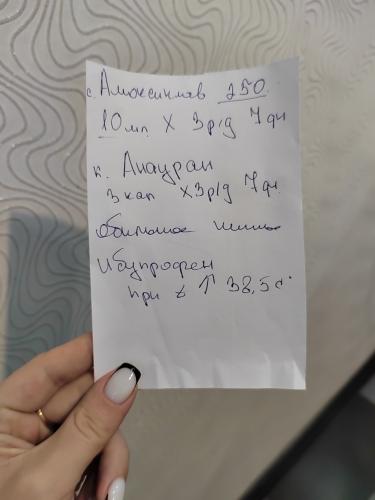 с. Амоксиклав 250.
10 мл. X 3 р/д 7 дн
к. Анауран
3 кап X3р/д 7 дн.
обильное питье
Ибупрофен
при t ↑ 38,5 с°